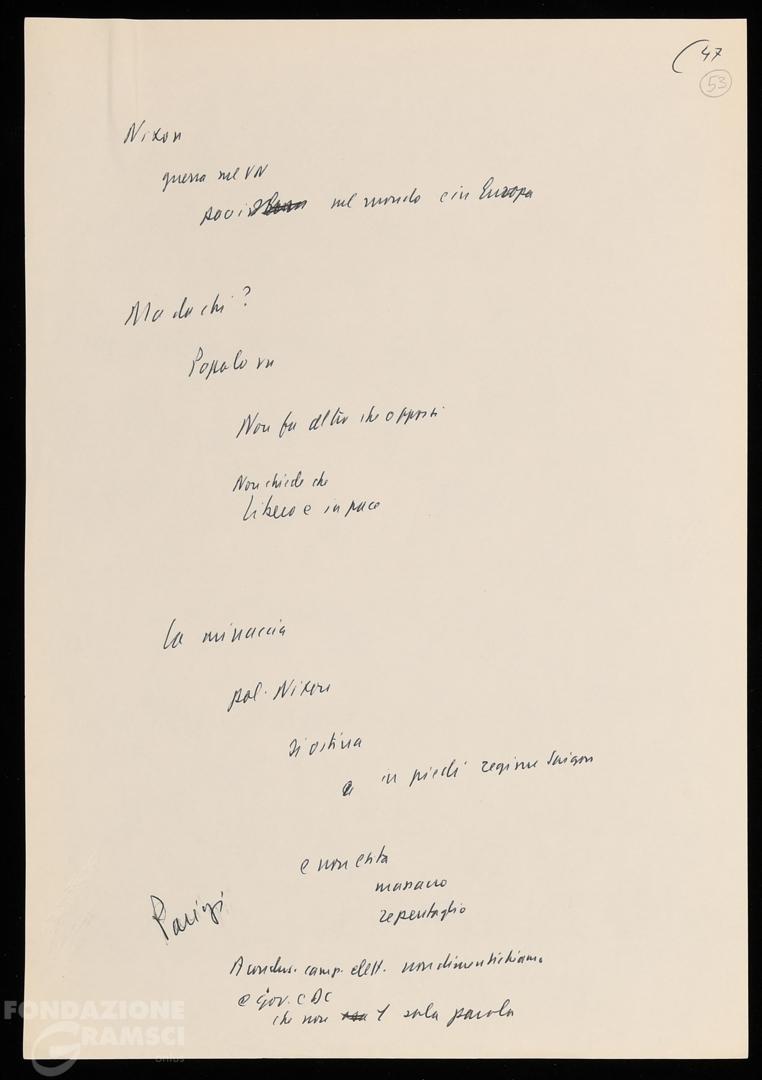 (47
53
Nixon
guerra nel VN
nel mondo e in Europa
Ma da chi?
Popolo vn
Non fa altro che opporsi
Non chiede che
libero e in pace
La minaccia
pol. Nixon
si ostina
a in piedi regime Saigon
e non esita
massacro
repentaglio
Parigi
A conclus. camp. elett. non dimentichiamo
e gov. e DC
che non 1 sola parola
FONDAZIONE
GRAMSCI
onlus